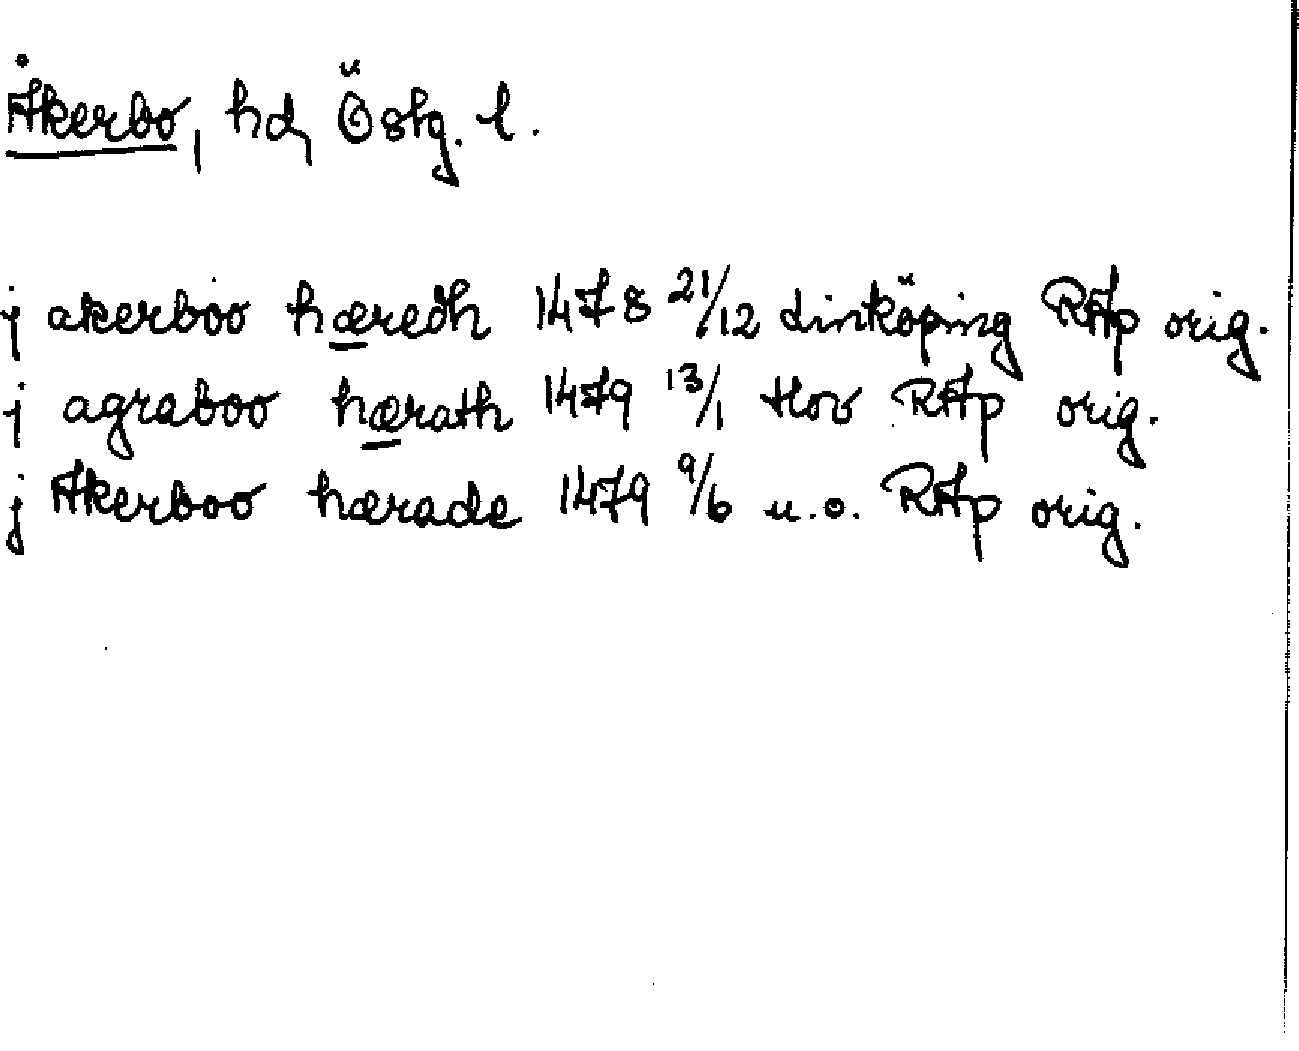 Åkerbo, hd, Östg. l.
j akerboo hæredh 1478 21/12 Linköping RAp orig.
j agraboo hærath 1479 13/1 Hov RAp orig.
j Akerboo hærade 1479 9/6 u.o. RAp orig.